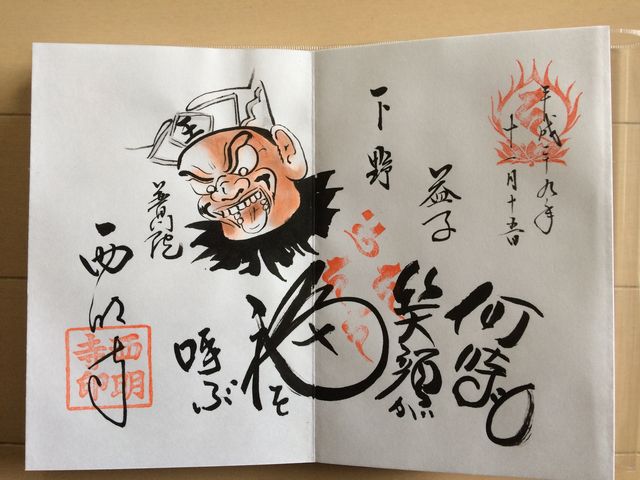 平成二十九年
十一月十五日
下野
益子
何時も
笑顔が
福を
呼ぶ
王
普門院
西明寺
西明寺印